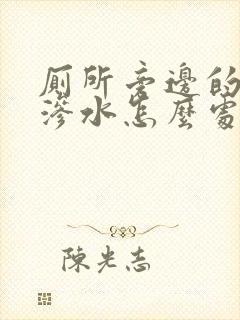 廁所旁邊的
滲水怎麼處
陳光志